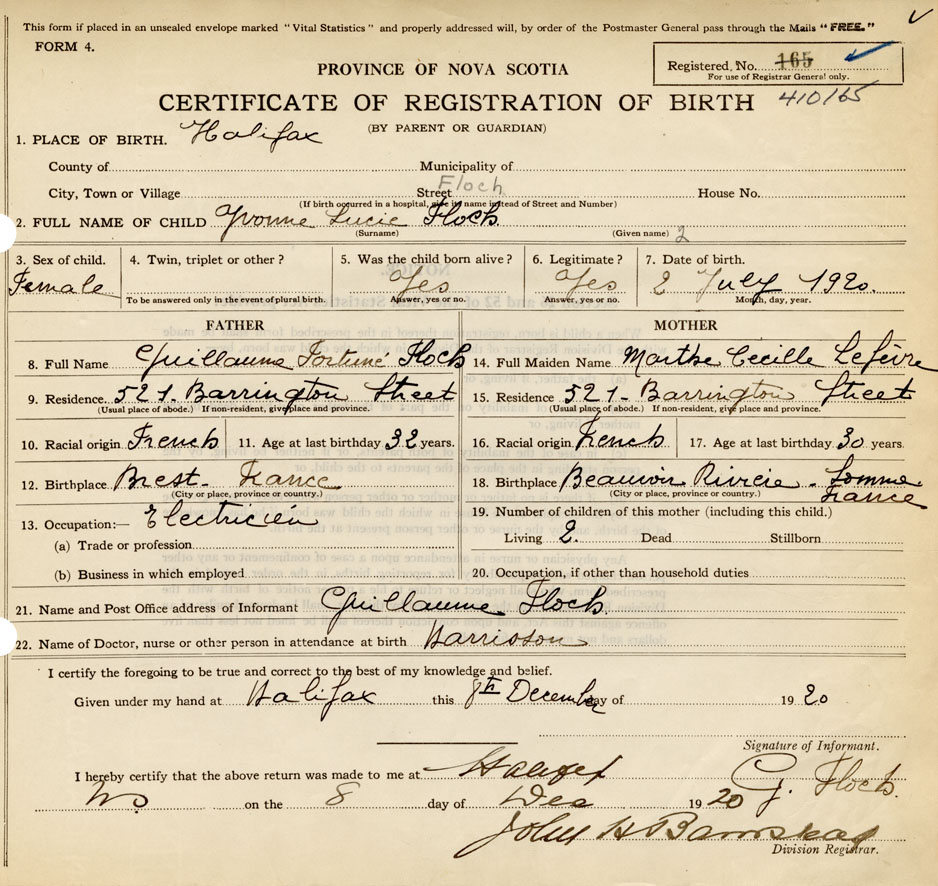 This form if placed in an unsealed envelope marked "Vital Statistics" and properly addressed will, by order of the Postmaster General pass through the Mails "FREE."
FORM 4.
Registered, No. 165
For use of Registrar General only.
PROVINCE OF NOVA SCOTIA
CERTIFICATE OF REGISTRATION OF BIRTH 410165
(BY PARENT OR GUARDIAN)
1. PLACE OF BIRTH. Halifax
County of Municipality of
City, Town or Village Street Floch House No.
(If birth occurred in a hospital, give its name instead of Street and Number)
2. FULL NAME OF CHILD Yvonne Lucie Floch
(Surname) (Given name) 2
3. Sex of child. 4. Twin, triplet or other ? 5. Was the child born alive ? 6. Legitimate ? 7. Date of birth.
Female Yes Yes 2 July 1920.
To be answered only in the event of plural birth. Answer, yes or no. Answer, yes or no. Month, day, year.
FATHER MOTHER
8. Full Name Guillaume Fortuné Floch 14. Full Maiden Name Marthe Cecille Lefèvre
9. Residence 521 Barrington Street 15. Residence 521 Barrington Street
(Usual place of abode.) If non-resident, give place and province. (Usual place of abode.) If non-resident, give place and province.
10. Racial origin French 11. Age at last birthday 32 years. 16. Racial origin French 17. Age at last birthday 30 years.
12. Birthplace Brest - France 18. Birthplace Beauvoir Rivière - Somme
France
(City or place, province or country.) (City or place, province or country.)
13. Occupation:— Electricien 19. Number of children of this mother (including this child.)
(a) Trade or profession Living 2. Dead Stillborn
(b) Business in which employed 20. Occupation, if other than household duties
21. Name and Post Office address of Informant Guillaume Floch
22. Name of Doctor, nurse or other person in attendance at birth
I certify the foregoing to be true and correct to the best of my knowledge and belief.
Given under my hand at Halifax this 8th December day of 1920
Signature of Informant.
G. Floch.
I hereby certify that the above return was made to me at Halifax
NS on the 8 day of Dec 1920
John H
Division Registrar.